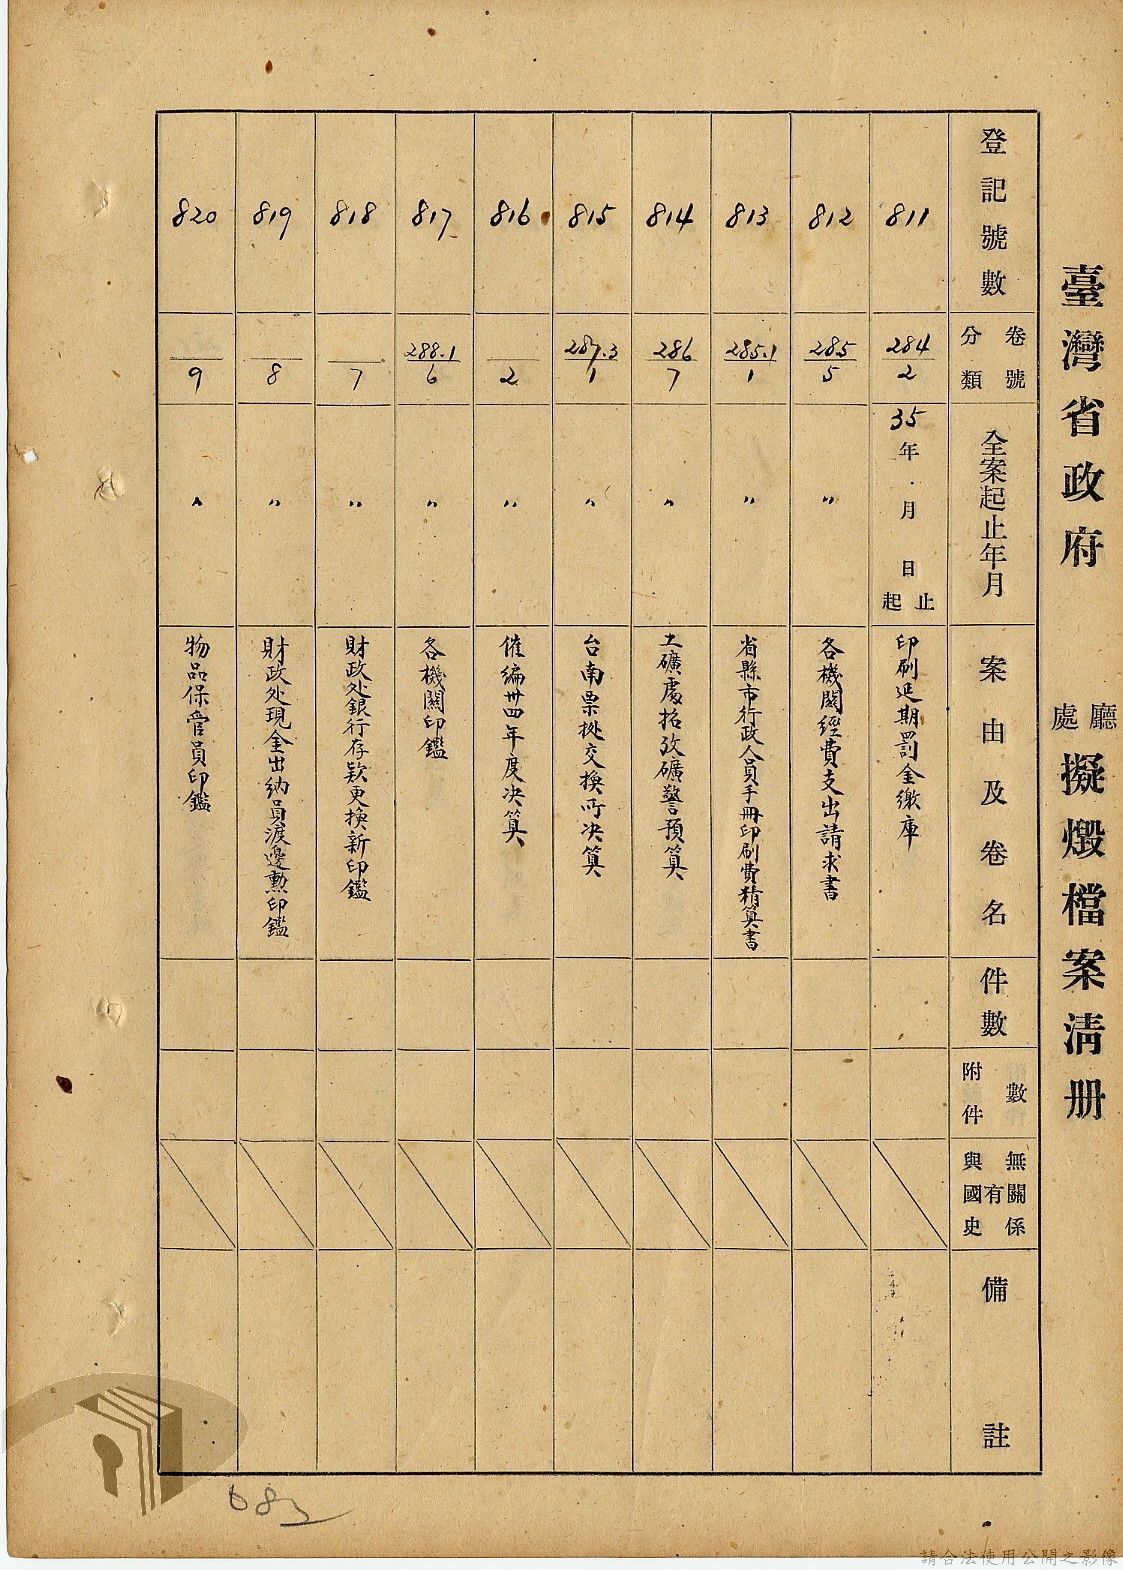 臺灣省政府 廳處 擬燬檔案清册
登記號數
分類 卷號
全案起止年月
案由及卷名
件數
附件數
與國史有無關係
備註
811
284/2
35年 月 日起止
印刷延期罰金繳庫
812
285/5
〃
各機關經費支出請求書
813
285.1/1
〃
省縣市行政人員手冊印刷費精算書
814
286/7
〃
土礦處 礦警預算
815
287.3/1
〃
台南票據交換所決算
816
2
〃
催編卅四年度決算
817
288.1/6
〃
各機關印鑑
818
7
〃
財政处銀行存款更換新印鑑
819
8
〃
財政处現金出納員渡邊勲印鑑
820
9
〃
物品保管員印鑑
683
請合法使用公開之影像